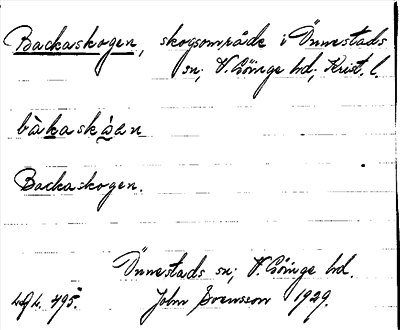 Backaskogen, skogsområde i Önnestads
sn; V. Göinge hd; Krist. l.
bàkaskàen
Backaskogen.
Önnestads sn; V. Göinge hd.
495. John Svensson 1929.